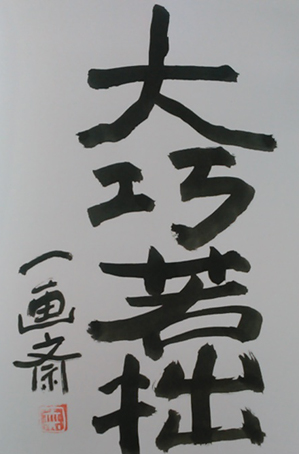 大巧若拙
一画斎